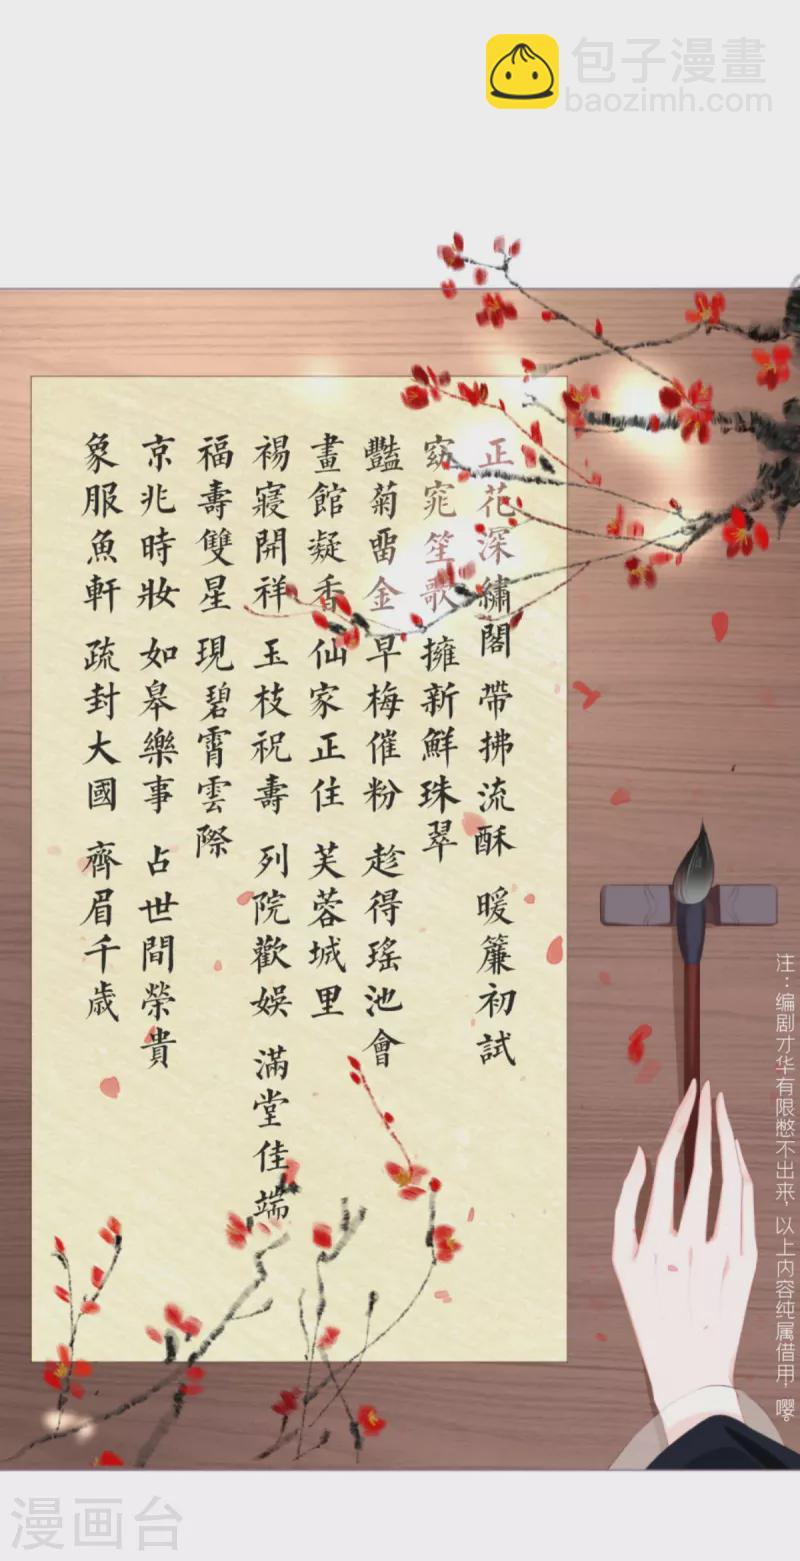 包子漫畫
baozimh.com
正花深繡閣 帶拂流酥 暖簾初試
窈窕笙歌 擁新鮮珠翠
豔菊留金 早梅催粉 趁得瑤池會
畫館凝香 仙家正住 芙蓉城里
禓寢開祥 玉枝祝壽 列院歡娛 滿堂佳端
福壽雙星 現碧霄雲際
京兆時妝 如皋樂事 占世間榮貴
象服魚軒 疏封大國 齊眉千歲
注：编剧才华有限憋不出来，以上内容纯属借用，嘤。
漫画台